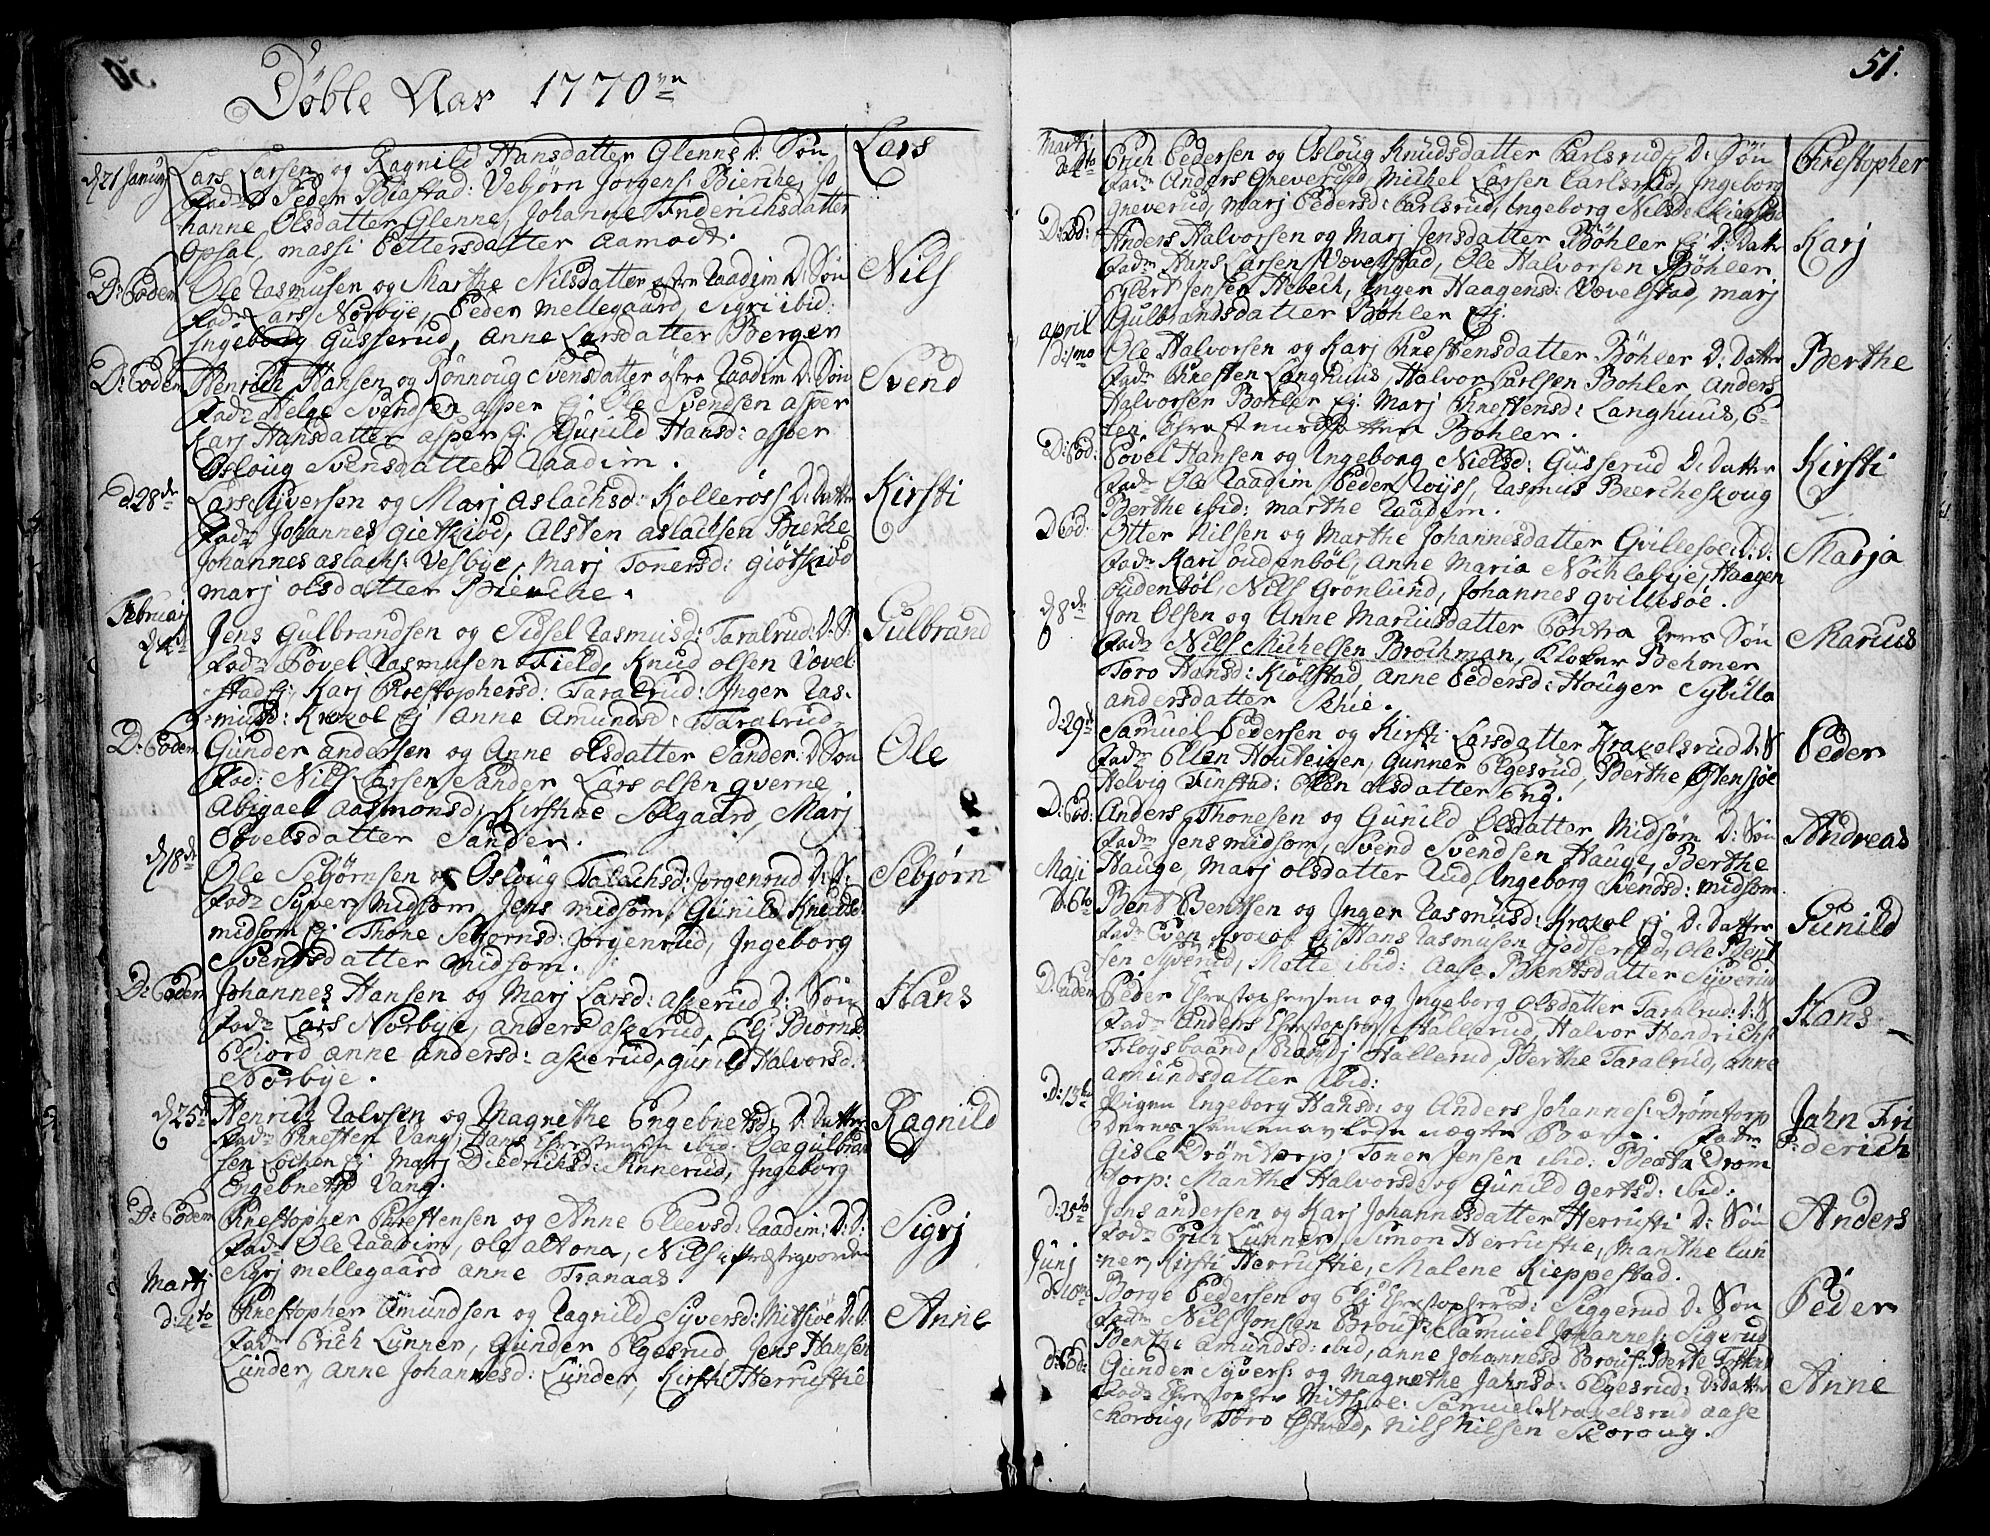 Döbte Aar 1770
d 21 Januarj Lars Larsen og Ragnild Hansdatter Glenne D: Søn Lars
Fad: Peder Biøstad: Vebjörn Jorgens: Bierche, Jo
hanne Olsdatter Glenne, Johanne Friderichsdatter
Opsal, massi Pettersdatter Aamodt.
D: Eodem Ole Rasmusen og Marthe Nilsdatter østre Raadim D: Søn Nils
Fad: Lars Norbÿe, Peder mellegaard, Sigri ibid:
Ingeborg Gusserud, Anne Larsdatter Berger
D: Eodem Henrich Hansen og Rönnoug Svensdatter østre Raadim D: Søn Svend
Fad: Helge Svendsen asper Ej Ole Svendsen asper
Karj Hansdatter asper Ej. Gunild Hansd: asper
Osloug Svensdatter Raadim.
d 28 de Lars Syversen og Marj aslachsd: Kolleröss D: Datter Kirsti
Fad: Johannes Gietskiöd, Alsten aslachsen Bierche
Johannes aslachs: Vesbÿe, Marj Tonersd: giötskiöd
marj olsdatter Bierche.
Februarj
d 4 de Jens Gulbrandsen og Sidsel Rasmusd: Taralrud: D: S. Gulbrand
Fad: Povel Rasmusen Field, Knud olsen Vevel
stad Ej: Karj Chrestophersd: Taralrud: Inger Ras-
musd: Krokol Ej Anne Amundsd: Taralrud
D: Eodem Gunder andersen og Anne olsdatter Sander: D: Søn Ole
Fad: Nils Larsen Sander Lars olsen gverne
Abigael Aasmonsd: Kirstine Solgaard, Marj
Povelsdatter Sander.
d 18 de Ole Sebjørnsen og Osloug Talachsd: Jorgenrud D: S: Sebjörn
Fad: Syver midsom, Jens midsom, Gunild Knuds
midsom Ej Thone Sebjornsd: Jorgenrud, Ingeborg
Svendsdatter midsom.
D: Eodem Johannes Hansen og Marj Larsd: askerud D: Søn Hans
Fad: Lars Norbÿe, anders askerud, Ej Biorns
Kiord anne andersd: askerud, gunild Halvorsd:
Norbÿe.
d 25 Henrich Halvsen og Magnethe Engebretsd: D: Datter Ragnild
Fad: Chresten Vang, Hans Chrestensen ibid. Ole gulbran
sen Lochen Ej Marj Diedrichsd: Sinnerud, Ingeborg
Engebrets Vang.
D: Eodem Chrestopher Chrestensen og Anne Elevsd: Raadim: D: D: Sigrj
Fad: Ole Raadim, ole altona, Nils Præstegaarden
Sigrj mellegaard anne Tranaas.
Martj
d: 4to Chrestopher Amundsen og Ragnild Syversd: Mitsiöe D: D: Anne
Fad: Erich Lunner, Gunder Egesrud Jens Hansen
Lunder, Anne Johannesd: Lunder, Kirsti Herrustie
51.
Martj
de 4to Erich Pedersen og Osloug Knudsdatter Carlsrud Ej D: Søn Chrestopher
Fad: Anders Greverud, Michel Larsen Carlsrud, Ingeborg
Greverud, Marj Pedersd: Carlsrud, Ingeborg Nilsd:
D: Eod: Anders Halvorsen og Marj Jensdatter Böhler Ej D: Datter Karj
Fad: Hans Larsen Vevelstad, Ole Halvorsen Böhler
Eglert Jensen Hebech, Inger Haagensd: Vevelstad, marj
Gulbrandsdatter Böhler Ej.
april
d: 1mo Ole Halvorsen og Karj Chrestensdatter Böhler D: Datter Berthe
Fad: Chresten Langhuus, Halvor Carlsen Bohler, Anders
Halvorsen Bohler Ej: Marj Chrestensd: Langhuus, E-
len Chrestensdatter Bohler.
D: Eod: Povel Hansen og Ingeborg Nielsd: Gusserud D: Datter Kirsti
Fad: Ole Raadim Peder Rÿss, Rasmus Biercheskoug
Berthe ibid: marthe Raadim.
D Eod: Otter Nilsen og Marthe Johannesdatter Gvillesoe: D: D: Marja
Fad: Kari oudenböl, Anne Maria Nöchlebÿe, Haagen
oudenböl, Nils Grönlund, Johannes gvillesöe.
d 8 de Jon Olsen og Anne Mariusdatter Contra Deres Søn Marius
Fad: Nils Michelsen Brochman, Kloker Behmer
Toro Hansd: Kiölstad, Anne Pedersd: Houger Sybilla
andersdatter Schie.
d: 29 Samuel Pedersen og Kirsti Larsdatter Kraxelsrud D: S Peder
Fad: Ellen Houteigen, Gunner Egesrud, Berthe Östensjöe
Helvig Finstad: Elen olsdatter Eng.
D: Eod: Anders Thonesen og Gunild Olsdatter Midsøm D: Søn Andreas
Fad: Jens midsom, Svend Svendsen Hauge, Berthe
Hauge, Marj olsdatter Rud, Ingeborg Svensd: midsom
Maji
d: 6to Bent Bentsen og Inger Rasmusd: Krokol Ej D: Datter Gunild
Fad: Evin Krokol Ej Hans Rasmusen Ole Bent
sen Syverud, Mette ibid: Aase Bentsdatter Syverud
D: Eodem Peder Chrestophersen og Ingeborg olsdatter Taralrud: D: S Hans
Fad: Anders Chrestophersen Hallerud, Halvor Hendrichs:
Floysbaand, Randj Hallerud, Berthe Taralrud, anne
amundsdatter ibid:
D: 13 Pigen Ingeborg Hansd: og Anders Johannes: Drömtorp Jahn Fri
Deres avlede uægte Barn. Fad: derich
Gisle Drömtorp: Toner Jensen ibid: Beata Dröm
torp: Marthe Halvorsd: og Gunild Gertsd: ibid:
d: 20 Jens andersen og Karj Johannesdatter Herrusti D: Søn Anders
Fad: Erich Lunner, Simon Herrustie, Marthe Lun
ner, Kirsti Herrustie, Malene Kieppestad.
Junj
d: 10 Borge Pedersen og Elj Chrestophersd: Siggerud D: Søn Peder
Fad: Nils Jonsen Brous: Samuel Johannes: Sigerud
Berthe amundsd: ibid, anne Johannesd Brous: Berte
d: Eod: Gunder Syvers: og Magnethe Jahnsd: Egesrud: D: Datter Anne
Fad: Chrestopher Mitsiöe: Samuel Kraxelsrud aase
Skoroug, Toro Nils Nilsen Skoroug.